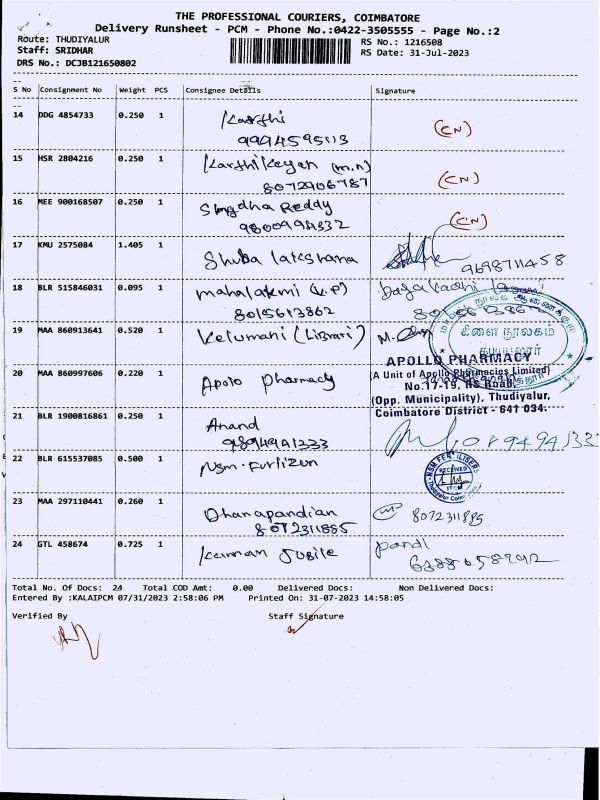 THE PROFESSIONAL COURIERS, COIMBATORE
Delivery Runsheet - PCM - Phone No.:0422-3505555 - Page No.:2
Route: THUDIYALUR
RS No.: 1216508
Staff: SRIDHAR
RS Date: 31-Jul-2023
DRS No.: DCJB121650802
S No Consignment No Weight PCS Consignee Details Signature
14 DDG 4854733 0.250 1 Karthi (CN)
9994595113
15 HSR 2804216 0.250 1 Karthikeyan (m.n) (CN)
8072906787
16 MEE 900168507 0.250 1 Reddy (CN)
17 KMU 2575084 1.405 1 Shuba lakshana 9698711458
18 BLR 515846031 0.095 1 mahalakmi (v.p)
8015613862
19 MAA 860913641 0.520 1 Kelumani (Librari)
கிளை நூலகம்
20 MAA 860997606 0.220 1 Apolo Pharmacy
APOLLO PHARMACY
(A Unit of Apollo Pharmacies Limited)
No.17-19, NS Road,
(Opp. Municipality), Thudiyalur,
Coimbatore District - 641 034.
21 BLR 1900816861 0.250 1 Anand
9894941333
22 BLR 615537085 0.500 1 Nsm. Furlizun
NSM FERTILISER
RECEIVED
23 MAA 297110441 0.260 1 Dhanapandian 8072311885
8072311885
24 GTL 458674 0.725 1 Kannan Jubile pandi
Total No. Of Docs: 24 Total COD Amt: 0.00 Delivered Docs: Non Delivered Docs:
Entered By :KALAIPCM 07/31/2023 2:58:06 PM Printed On: 31-07-2023 14:58:05
Verified By Staff Signature